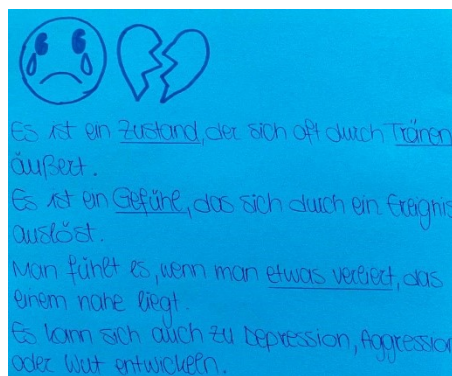 Es ist ein Zustand, der sich oft durch Tränen
äußert.
Es ist ein Gefühl, das sich durch ein Ereignis
auslöst.
Man fühlt es, wenn man etwas verliert, das
einem nahe liegt.
Es kann sich auch zu Depression, Aggression
oder Wut entwickeln.